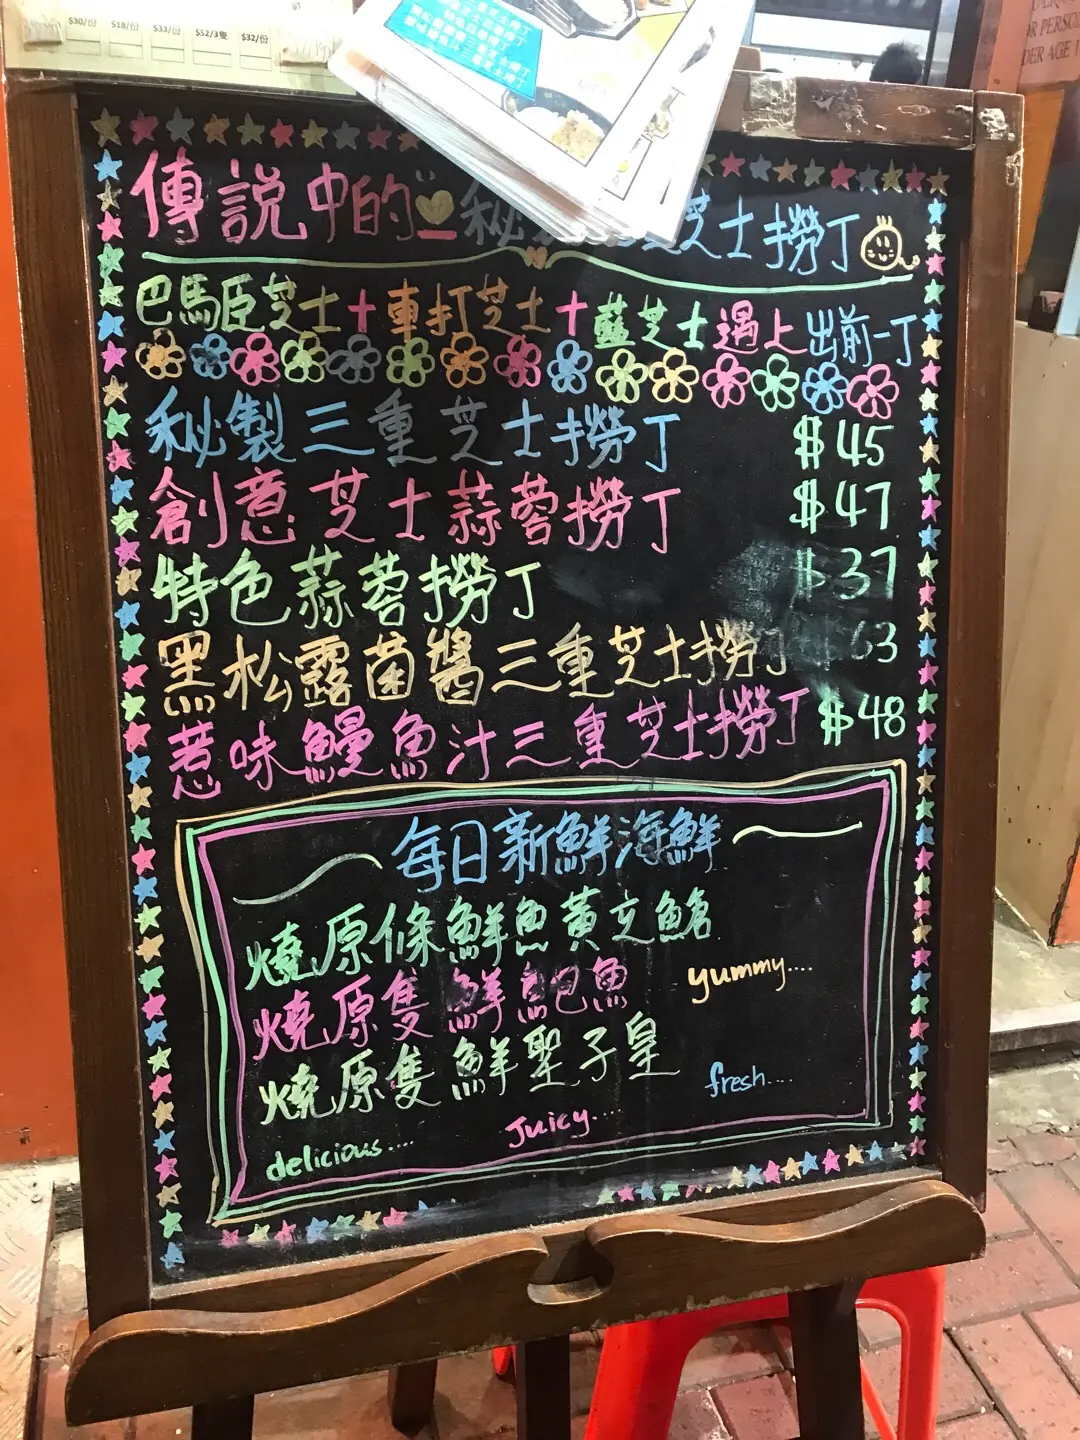 $30/份 $18/份 $33/份 $52/3隻 $32/份
R PERSO
DER AGE 1
傳說中的 秘 芝士撈丁
巴馬臣芝士+車打芝士+藍芝士遇上出前一丁
秘製三重芝士撈丁 $45
創意芝士蒜蓉撈丁 $47
特色蒜蓉撈丁 $37
黑松露菌醬三重芝士撈丁 63
惹味鰻魚汁三重芝士撈丁 $48
每日新鮮海鮮
燒原條鮮魚黃立鯧
燒原隻鮮鮑魚
yummy....
燒原隻鮮聖子皇
fresh....
Juicy....
delicious....